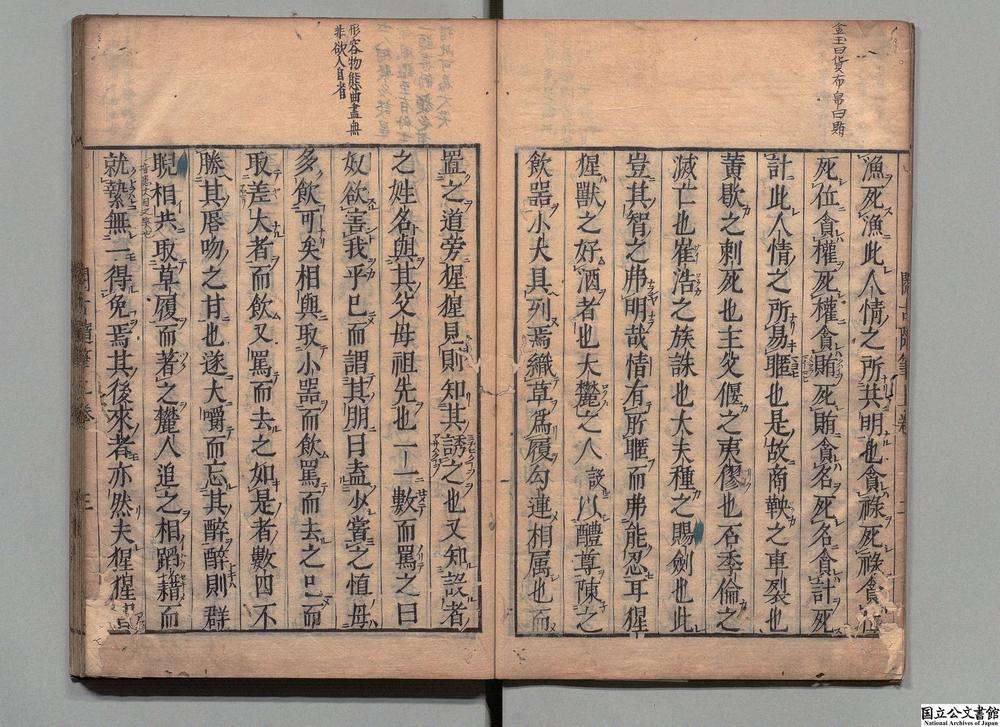 金玉曰貨布帛曰賄
漁死漁此人情之所共明也貪祿死祿貪位
死位貪權死權貪賄死賄貪名死名貪計死
計此人情之所易暱也是故商鞅之車裂也
黄歇之刺死也主父偃之夷僇也石季倫之
滅亡也崔浩之族誅也大夫種之賜劍也此
豈其智之弗明哉情有所暱而弗能忍耳猩
猩獸之好酒者也大麓之人設以醴尊陳之
飲器小大具列焉織草爲履勾連相属也而
形容物態曲盡無
非欲人自省
置之道旁猩猩見則知其誘之也又知設者
之姓名與其父母祖先也一一數而罵之曰
奴欲害我乎已而謂其朋曰盍少嘗之慎毋
多飲可矣相與取小器而飲罵而去之已而
取差大者而飲又罵而去之如是者數四不
勝其唇吻之甘也遂大嚼而忘其醉醉則群
睨相共取草履而著之麓人追之相蹈藉而
就縶無一得免焉其後來者亦然夫猩猩
国立公文書館
National Archives of Japan